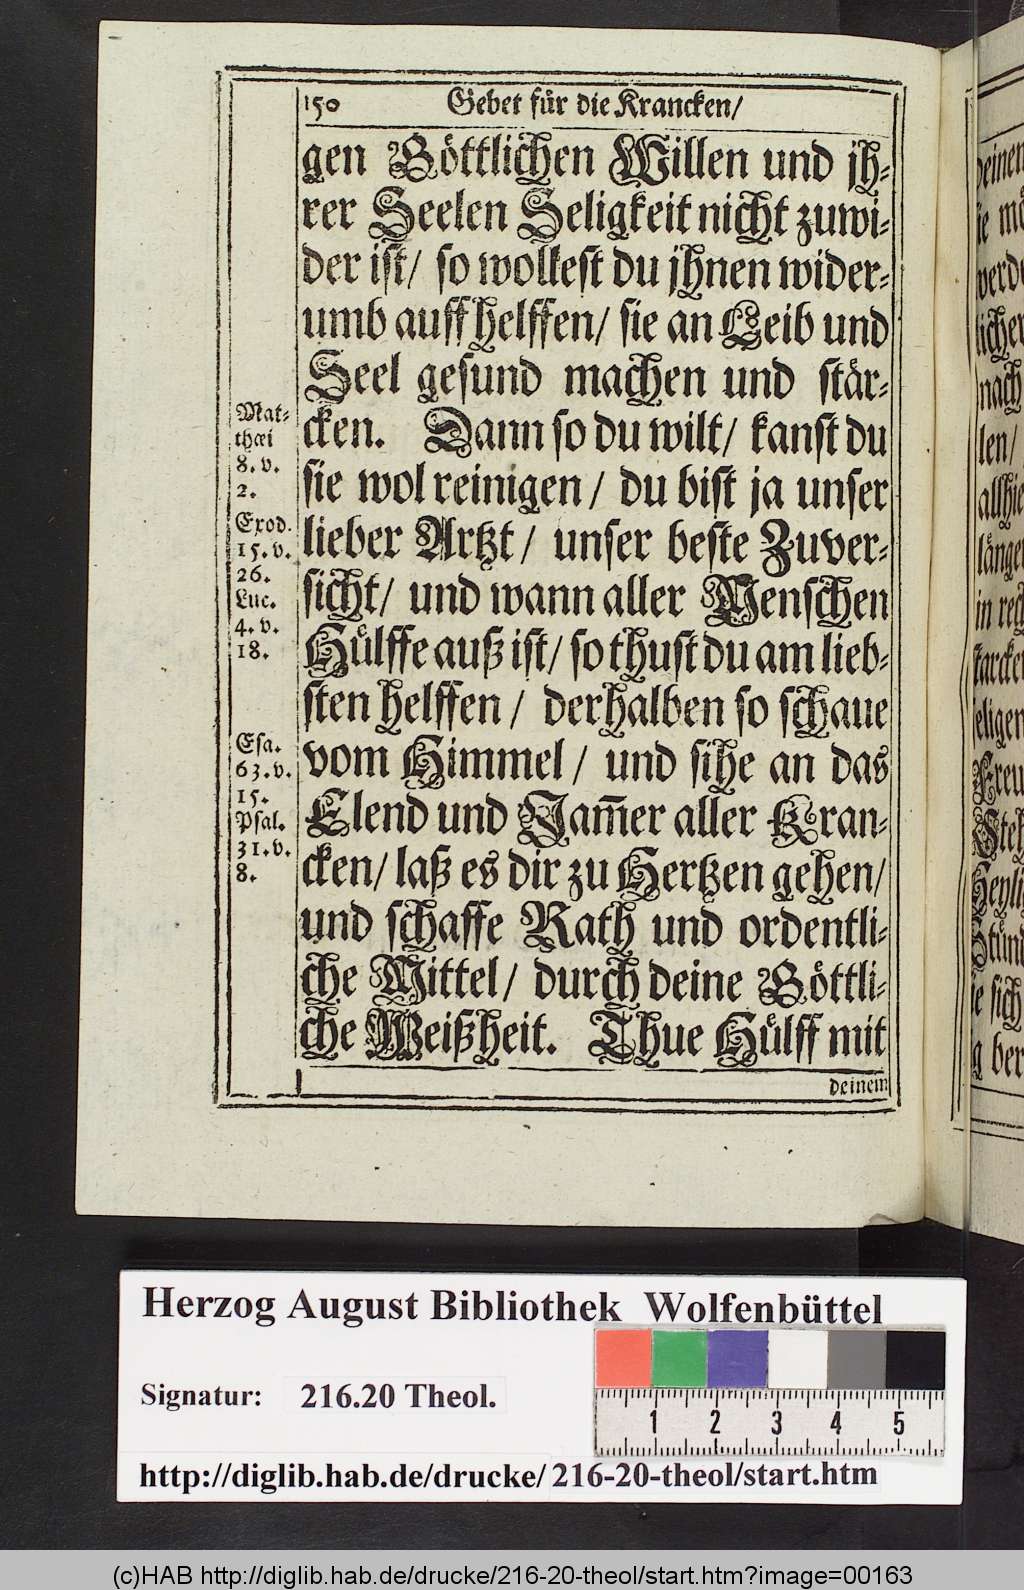 150 Gebet für die Krancken/
gen Göttlichen Willen und jh-
rer Seelen Seligkeit nicht zuwi-
der ist/ so wollest du jhnen wider-
umb auff helffen/ sie an Leib und
Seel gesund machen und stär-
cken. Dann so du wilt/ kanst du
sie wol reinigen/ du bist ja unser
lieber Artzt/ unser beste Zuver-
sicht/ und wann aller Menschen
Hülffe auß ist/ so thust du am lieb-
sten helffen/ derhalben so schaue
vom Himmel/ und sihe an das
Elend und Jam̃er aller Kran-
cken/ laß es dir zu Hertzen gehen/
und schaffe Rath und ordentli-
che Mittel/ durch deine Göttli-
che Weißheit. Thue Hülff mit
deinem
Mat-
thæi
8. v.
2.
Exod.
15. v.
26.
Luc.
4. v.
18.
Esa.
63. v.
15.
Psal.
31. v.
8.
deinen
verd
licher
nach
len/
allhie
länge
in rec
starcke
seligen
Freu
Heyli
Stünd
sich
ber
Herzog August Bibliothek Wolfenbüttel
Signatur: 216.20 Theol.
1 2 3 4 5
http://diglib.hab.de/drucke/216-20-theol/start.htm
(c)HAB http://diglib.hab.de/drucke/216-20-theol/start.htm?image=00163